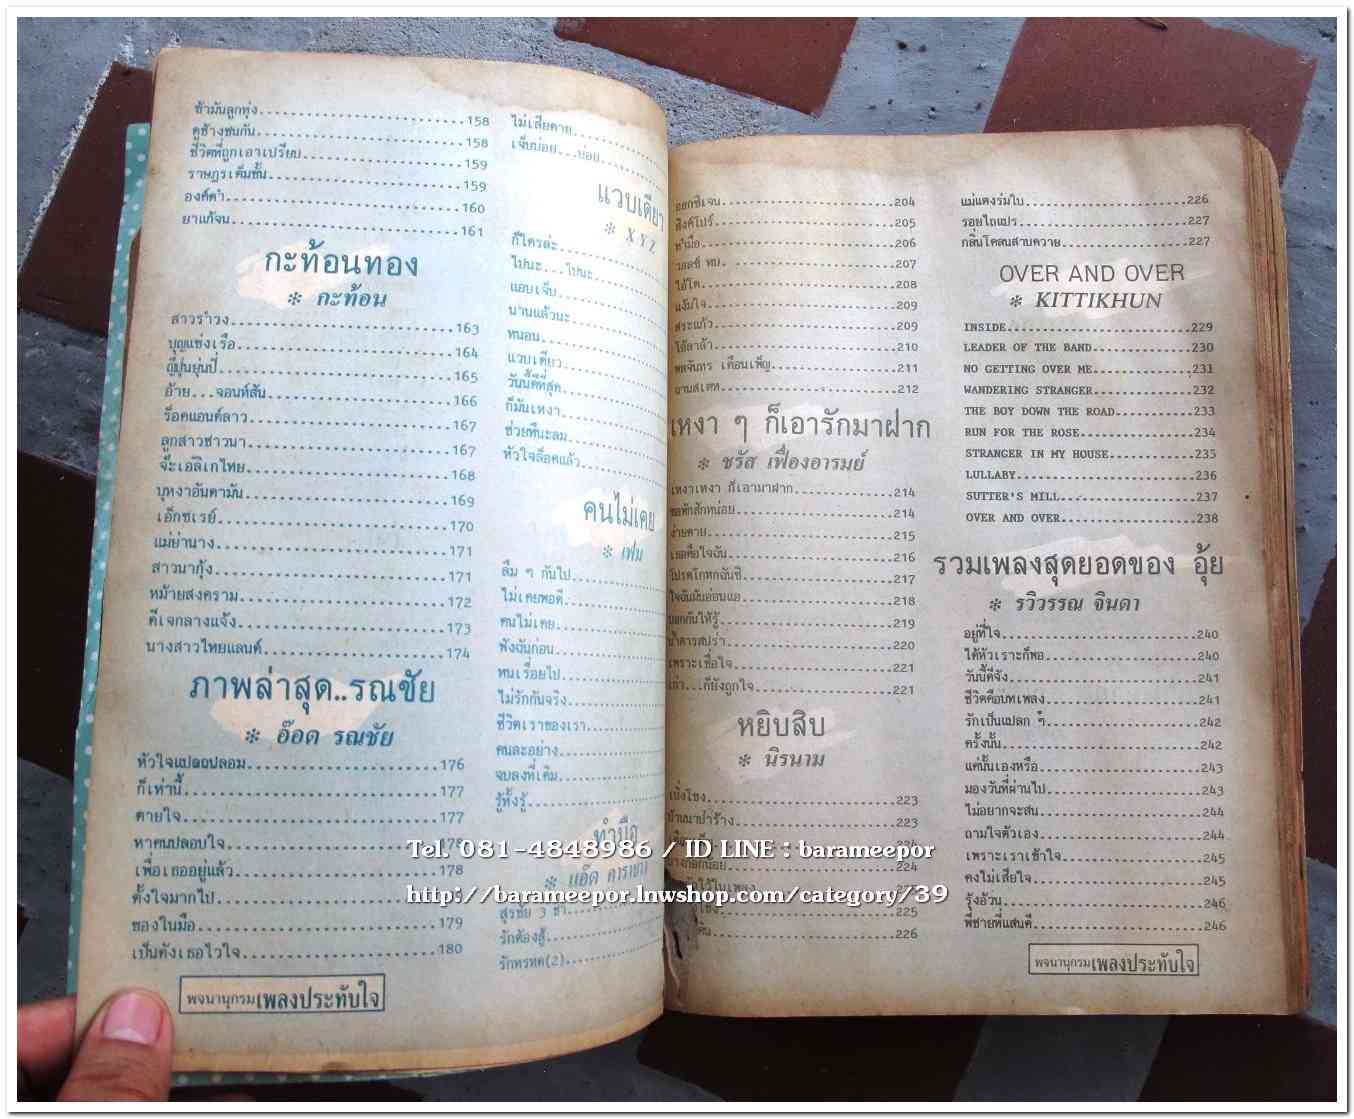 ช้ามันลูกทุ่ง 158
คู่ช้างชนกัน 158
ชีวิตที่ถูกเอาเปรียบ 159
ราษฎรเต็มขั้น 159
องค์ดำ 160
ยาแก้จน 161
กะท้อนทอง
* กะท้อน
สาวรำวง 163
บุญแข่งเรือ 164
ญี่ปุ่นยุ่นปี่ 165
อ้าย...จอนห์สัน 166
ร็อคแอนด์ลาว 167
ลูกสาวชาวนา 167
จ๊ะเอลิเกไทย 168
บุหงาอันดามัน 169
เอ็กซเรย์ 170
แม่ย่านาง 171
สาวนากุ้ง 171
หม้ายสงคราม 172
ดีเจกลางแจ้ง 173
นางสาวไทยแลนด์ 174
ภาพล่าสุด..รณชัย
* อ๊อด รณชัย
หัวใจแปลกปลอม 176
ก็เท่านี้ 177
ตายใจ 177
หาคนปลอบใจ 178
เพื่อเธออยู่แล้ว 178
ตั้งใจมากไป
ของในมือ 179
เป็นดังเธอไว้ใจ 180
พจนานุกรมเพลงประทับใจ
ไม่เสียดาย
เจ็บบ่อย...บ่อย
แวบเดียว
* X Y Z
ก็ใครล่ะ
ไปนะ...ไปนะ
แอบเจ็บ
นานแล้วนะ
หนอน
แวบเดียว
วันนี้ดีที่สุด
ก็มันเหงา
ช่วยทีนะลม
หัวใจล็อคแล้ว
คนไม่เคย
* เฟม
ลืม ๆ กันไป
ไม่เคยพอดี
คนไม่เคย
ฟังฉันก่อน
ทนเรื่อยไป
ไม่รักกันจริง
ชีวิตเราของเรา
คนละอย่าง
จบลงที่เดิม
รู้ทั้งรู้
ทำมือ
* แอ๊ด คาราบาว
สุรชัย 3 ช่า
รักต้องสู้
รักทรหด(2)
ออกซิเจน 204
สิงค์โปร์ 205
ทำเมื่อ 206
วอลซ์ ทบ 207
ไอ้โต 208
แง้มใจ 209
สระแก้ว 209
โอ้ลาล้า 210
พลจันทร เดือนเพ็ญ 211
ยานสเตท 212
เหงา ๆ ก็เอารักมาฝาก
* ชรัส เฟื่องอารมย์
เหงาเหงา ก็เอามาฝาก 214
ขอพักสักหน่อย 214
ง่ายดาย 215
เธอคือใจฉัน 216
โปรดโกหกฉันซิ 217
ใจฉันมันอ่อนแอ 218
บอกกันให้รู้ 219
น้ำตารสปร่า 220
เพราะเชื่อใจ 221
เก่า...ก็ยังถูกใจ 221
หยิบสิบ
* นิรนาม
เบ้งโชง 223
บ้านนาป่าร้าง 223
224
นางกอกน้อย 224
225
226
แม่แตงร่มใบ 226
รอยไถแปร 227
กลิ่นโคลนสาบควาย 227
OVER AND OVER
* KITTIKHUN
INSIDE 229
LEADER OF THE BAND 230
NO GETTING OVER ME 231
WANDERING STRANGER 232
THE BOY DOWN THE ROAD 233
RUN FOR THE ROSE 234
STRANGER IN MY HOUSE 235
LULLABY 236
SUTTER'S MILL 237
OVER AND OVER 238
รวมเพลงสุดยอดของ อุ้ย
* รวิวรรณ จินดา
อยู่ที่ใจ 240
ได้หัวเราะก็พอ 240
วันนี้ดีจัง 241
ชีวิตคือบทเพลง 241
รักเป็นแปลก ๆ 242
ครั้งนั้น 242
แค่นั้นเองหรือ 243
มองวันที่ผ่านไป 243
ไม่อยากจะสน 244
ถามใจตัวเอง 244
เพราะเราเข้าใจ 245
คงไม่เสียใจ 245
รุ้งอ้วน 246
พี่ชายที่แสนดี 246
พจนานุกรมเพลงประทับใจ
Tel. 081-4848986 / ID LINE : barameepor
http://barameepor.lnwshop.com/category/39